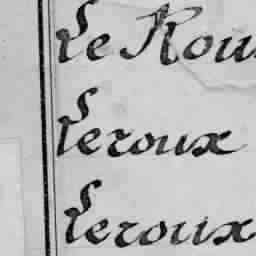 Le Rou
Leroux
Leroux